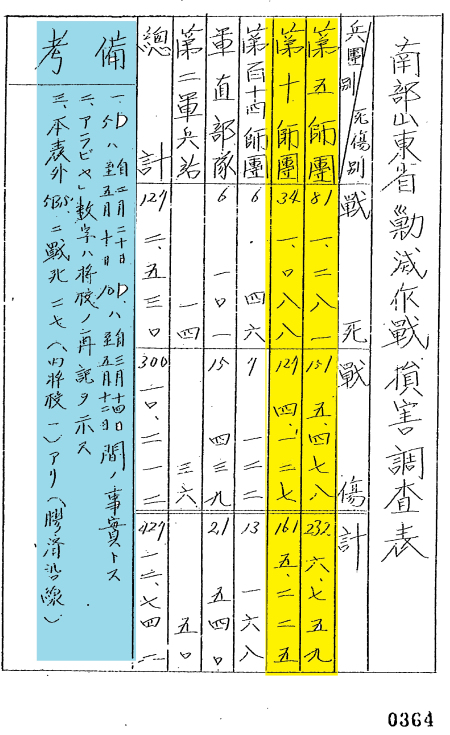 南部山東省勦滅作戰損害調査表
兵團別 死傷別 戰死 戰傷 計
第五師團 81 一、二八一 151 五、四七八 232 六、七五九
第十師團 34 一、〇八八 127 四、一三七 161 五、二二五
第百十四師團 6 四六 7 一二二 13 一六八
軍直部隊 6 一〇一 15 四三九 21 五四〇
第二軍兵站 一四 三六 五〇
總計 127 二、五三〇 300 一〇、二一二 427 一二、七四二
備考
一、5Dハ自二月二十日至五月十日 10Dハ自三月十四日至五月十二日間ノ事實トス
二、アラビヤ」數字ハ將校ノ再記ヲ示ス
三、本表外ニ戰死二七(内將校一)アリ(膠濟沿線)
0364